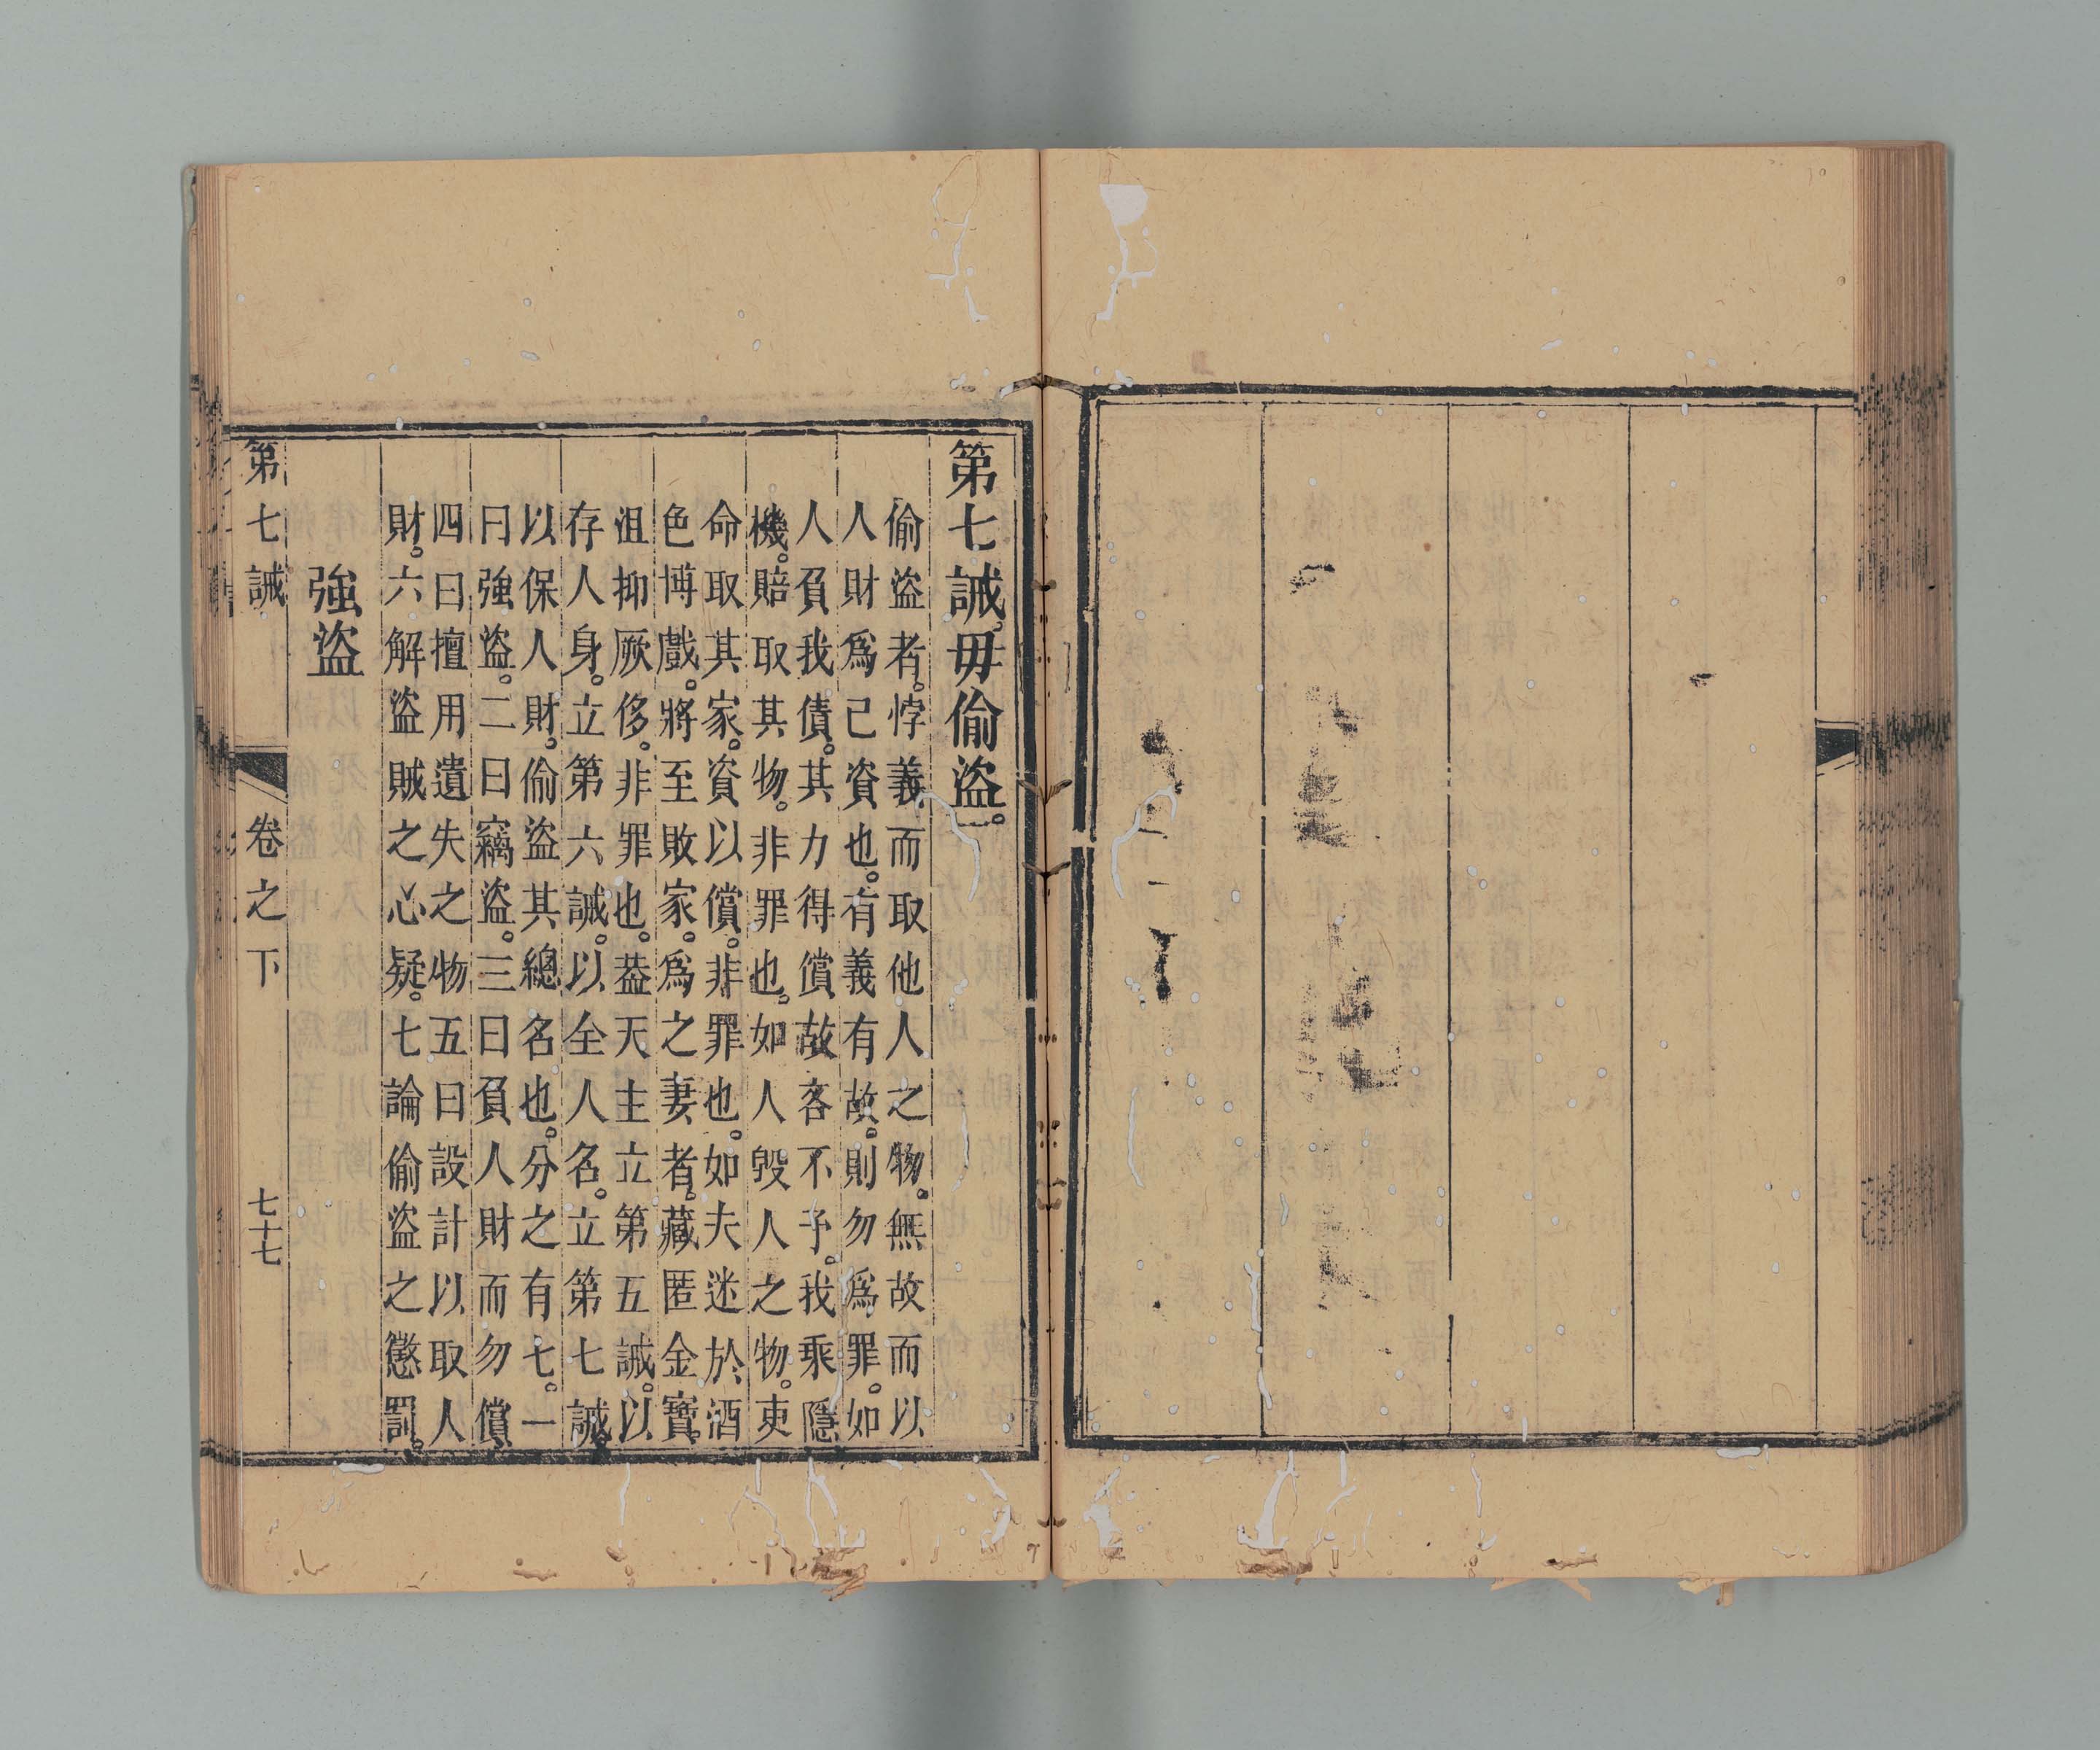 第七誡。毋偷盜。
偷盜者。悖義而取他人之物。無故而以
人財爲己資也。有義有故。則勿爲罪。如
人負我債。其力得償。故吝不予。我乘隱
機。賠取其物。非罪也。如人毀人之物。吏
命取其家。資以償。非罪也。如夫迷於酒
色博戲。將至敗家。爲之妻者。藏匿金寶。
沮抑厥侈。非罪也。葢天主立第五誡。以
存人身。立第六誡。以全人名。立第七誡。
以保人財。偷盜其總名也。分之有七。一
曰強盜。二曰竊盜。三曰負人財而勿償。
四曰擅用遺失之物。五曰設計以取人
財。六解盜賊之心疑。七論偷盜之懲罰。
強盜
第七誡 卷之下 七十七